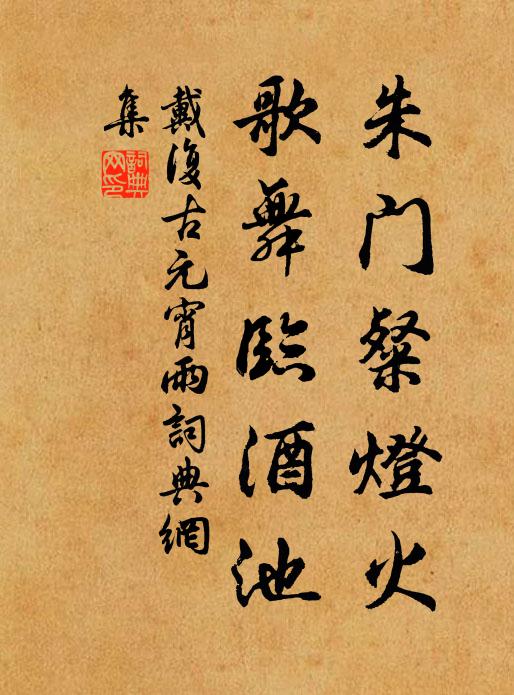 朱門粲燈火
歌舞臨酒池
戴復古元宵雨詞典網
集
詞典網印